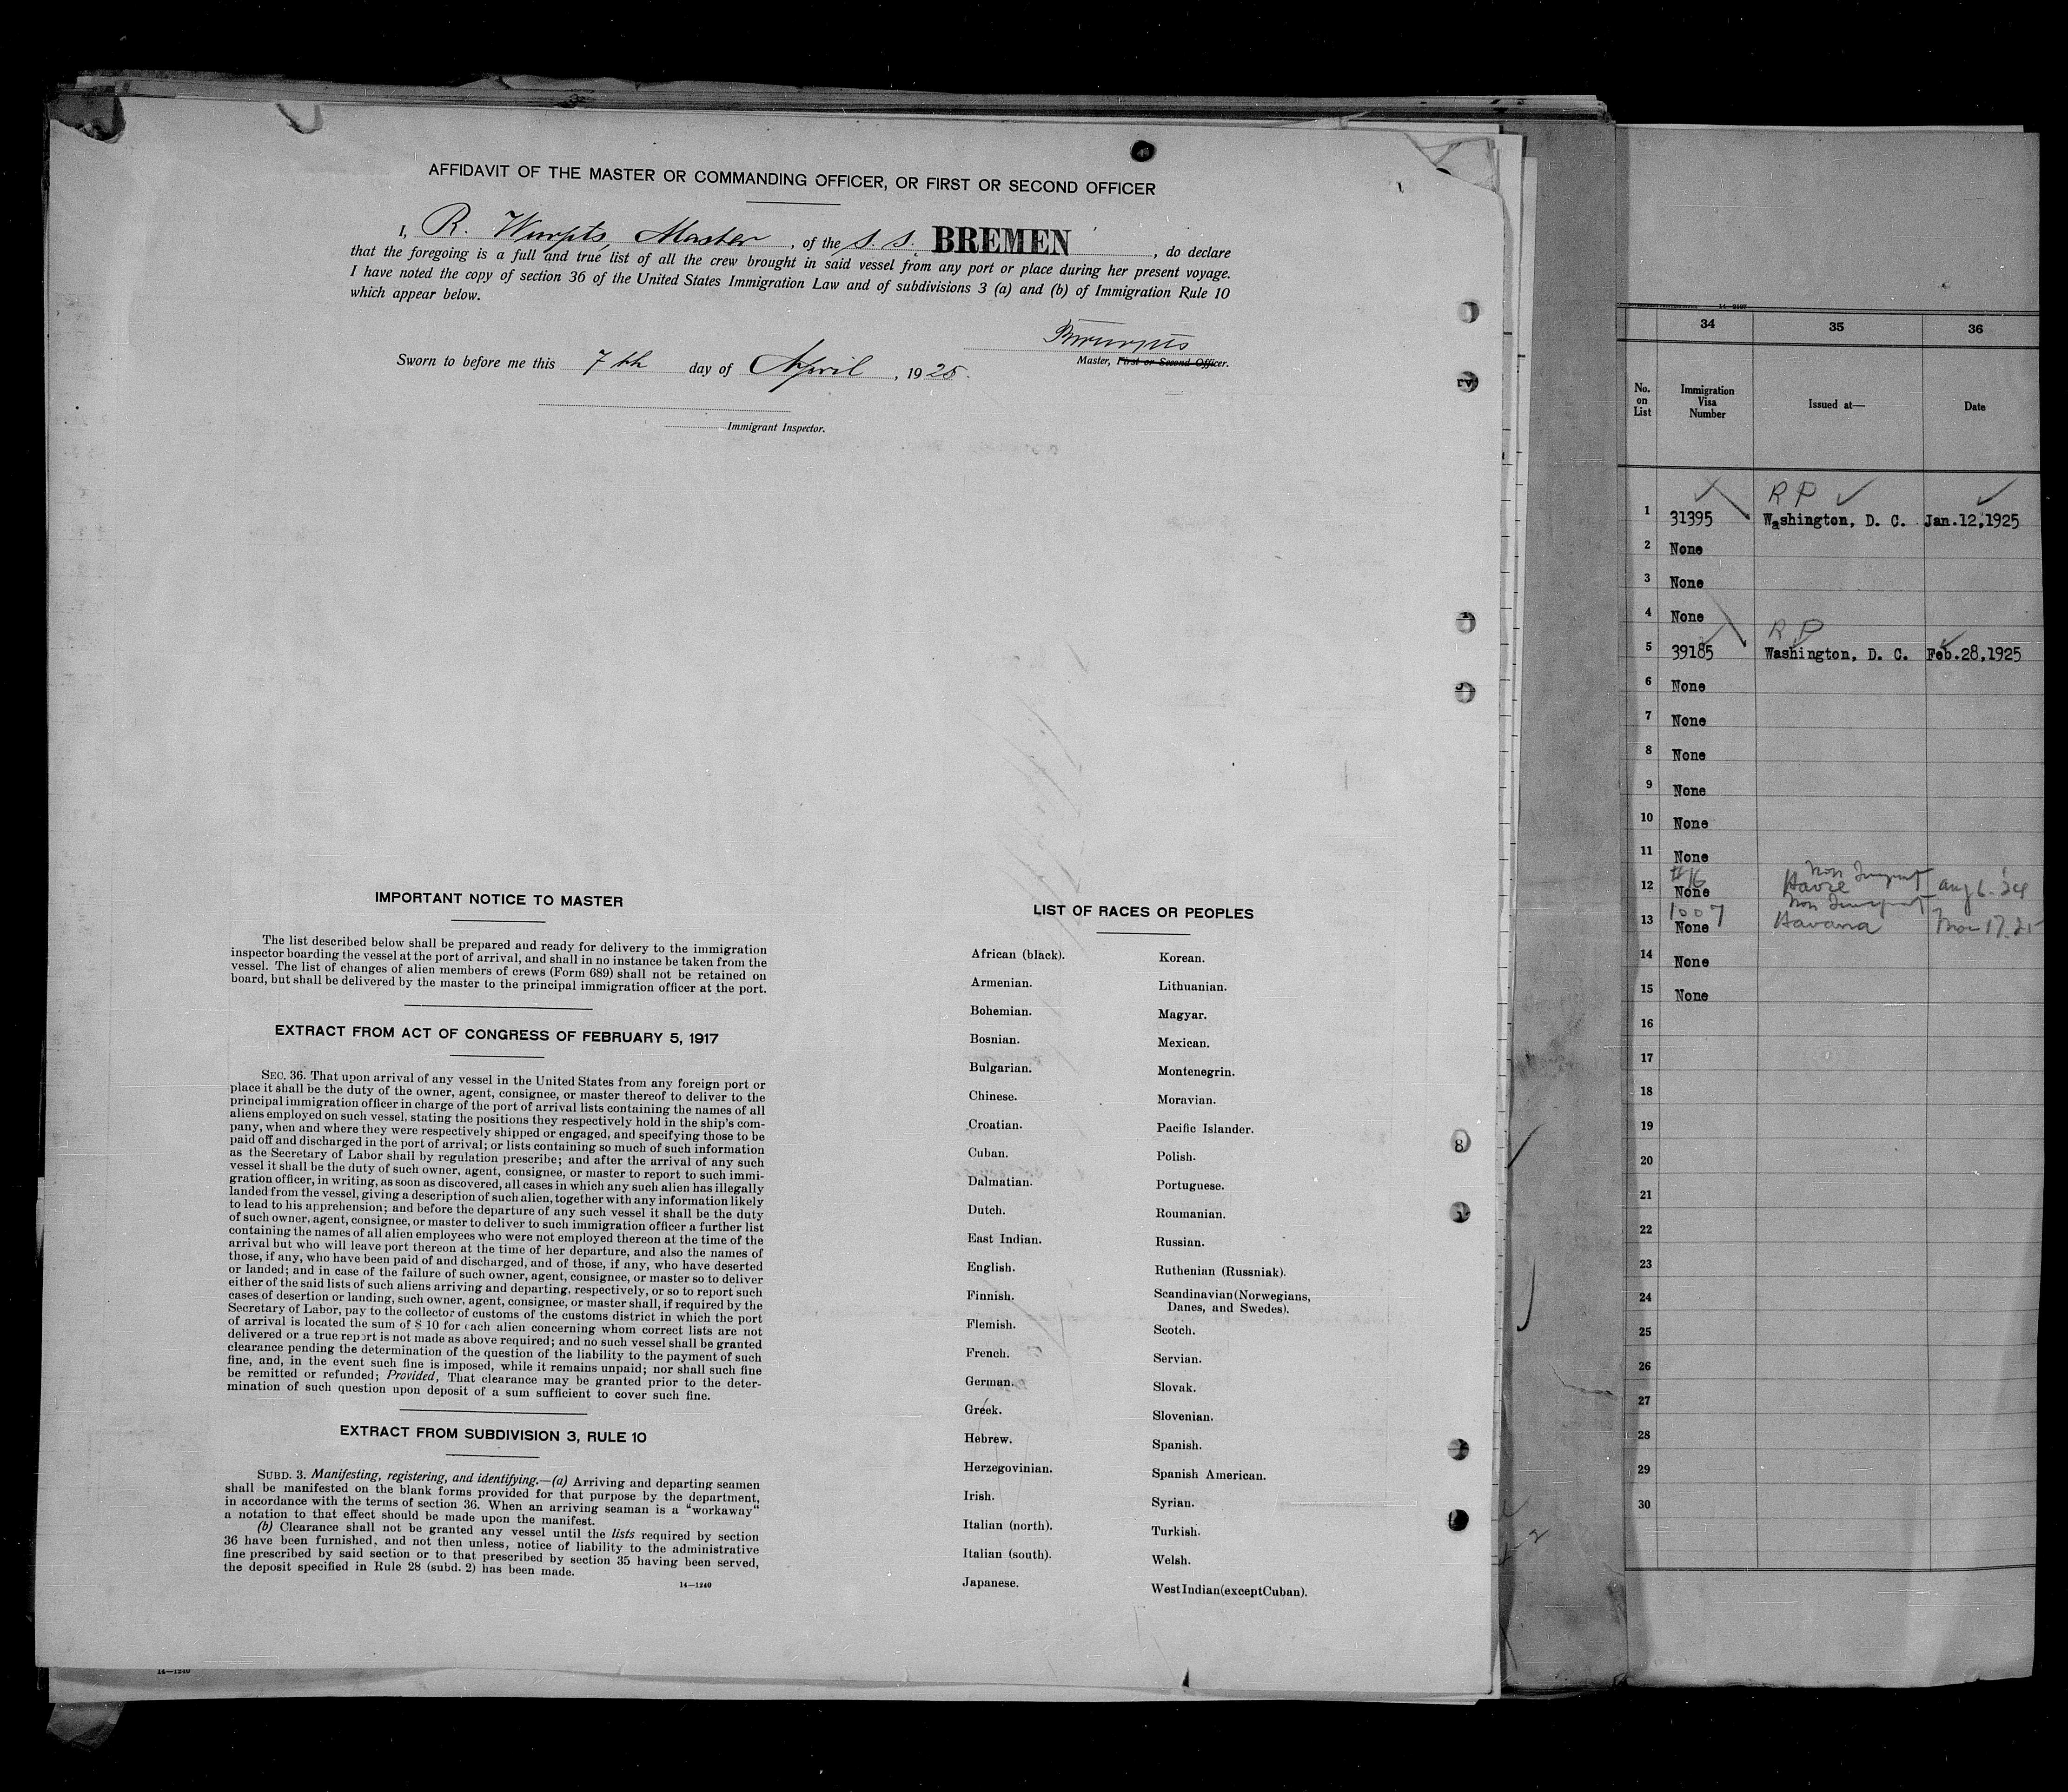 AFFIDAVIT OF THE MASTER OR COMMANDING OFFICER, OR FIRST OR SECOND OFFICER
I, R. Wurpts, Master, of the S. S. BREMEN, do declare
that the foregoing is a full and true list of all the crew brought in said vessel from any port or place during her present voyage.
I have noted the copy of section 36 of the United States Immigration Law and of subdivisions 3 (a) and (b) of Immigration Rule 10
which appear below.
Sworn to before me this 7th day of April, 1925.
Master, First or Second Officer.
Immigrant Inspector.
IMPORTANT NOTICE TO MASTER
The list described below shall be prepared and ready for delivery to the immigration
inspector boarding the vessel at the port of arrival, and shall in no instance be taken from the
vessel. The list of changes of alien members of crews (Form 689) shall not be retained on
board, but shall be delivered by the master to the principal immigration officer at the port.
EXTRACT FROM ACT OF CONGRESS OF FEBRUARY 5, 1917
SEC. 36. That upon arrival of any vessel in the United States from any foreign port or
place it shall be the duty of the owner, agent, consignee, or master thereof to deliver to the
principal immigration officer in charge of the port of arrival lists containing the names of all
aliens employed on such vessel, stating the positions they respectively hold in the ship's com-
pany, when and where they were respectively shipped or engaged, and specifying those to be
paid off and discharged in the port of arrival; or lists containing so much of such information
as the Secretary of Labor shall by regulation prescribe; and after the arrival of any such
vessel it shall be the duty of such owner, agent, consignee, or master to report to such immi-
gration officer, in writing, as soon as discovered, all cases in which any such alien has illegally
landed from the vessel, giving a description of such alien, together with any information likely
to lead to his apprehension; and before the departure of any such vessel it shall be the duty
of such owner, agent, consignee, or master to deliver to such immigration officer a further list
containing the names of all alien employees who were not employed thereon at the time of the
arrival but who will leave port thereon at the time of her departure, and also the names of
those, if any, who have been paid of and discharged, and of those, if any, who have deserted
or landed; and in case of the failure of such owner, agent, consignee, or master so to deliver
either of the said lists of such aliens arriving and departing, respectively, or so to report such
cases of desertion or landing, such owner, agent, consignee, or master shall, if required by the
Secretary of Labor, pay to the collector of customs of the customs district in which the port
of arrival is located the sum of $ 10 for each alien concerning whom correct lists are not
delivered or a true report is not made as above required; and no such vessel shall be granted
clearance pending the determination of the question of the liability to the payment of such
fine, and, in the event such fine is imposed, while it remains unpaid; nor shall such fine
be remitted or refunded; Provided, That clearance may be granted prior to the deter-
mination of such question upon deposit of a sum sufficient to cover such fine.
EXTRACT FROM SUBDIVISION 3, RULE 10
SUBD. 3. Manifesting, registering, and identifying.—(a) Arriving and departing seamen
shall be manifested on the blank forms provided for that purpose by the department,
in accordance with the terms of section 36. When an arriving seaman is a "workaway"
a notation to that effect should be made upon the manifest.
(b) Clearance shall not be granted any vessel until the lists required by section
36 have been furnished, and not then unless, notice of liability to the administrative
fine prescribed by said section or to that prescribed by section 35 having been served,
the deposit specified in Rule 28 (subd. 2) has been made.
14—1240
LIST OF RACES OR PEOPLES
African (black).
Armenian.
Bohemian.
Bosnian.
Bulgarian.
Chinese.
Croatian.
Cuban.
Dalmatian.
Dutch.
East Indian.
English.
Finnish.
Flemish.
French.
German.
Greek.
Hebrew.
Herzegovinian.
Irish.
Italian (north).
Italian (south).
Japanese.
Korean.
Lithuanian.
Magyar.
Mexican.
Montenegrin.
Moravian.
Pacific Islander.
Polish.
Portuguese.
Roumanian.
Russian.
Ruthenian (Russniak).
Scandinavian (Norwegians,
Danes, and Swedes).
Scotch.
Servian.
Slovak.
Slovenian.
Spanish.
Spanish American.
Syrian.
Turkish.
Welsh.
West Indian (except Cuban).
14—1240
8
34 35 36
No. on List Immigration Visa Number Issued at— Date
R P
1 31395 Washington, D. C. Jan.12,1925
2 None
3 None
4 None
R P
5 39185 Washington, D. C. Feb.28,1925
6 None
7 None
8 None
9 None
10 None
11 None
12 #16 None Havre Aug 6-24
13 1007 None Havana
14 None
15 None
16
17
18
19
20
21
22
23
24
25
26
27
28
29
30